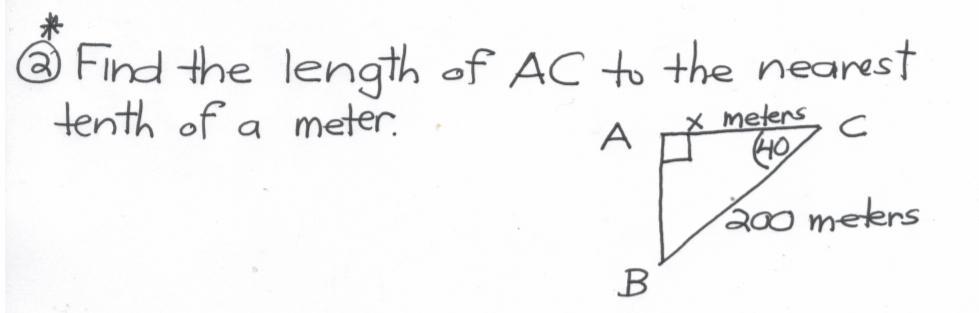 *
② Find the length of AC to the nearest
tenth of a meter.
A x meters C
40
200 meters
B